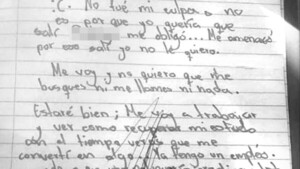 :C. No fué mi culpa, no
es por que yo quería que
salí me obligó... Me amenazó
por eso salí yo no le quiero.
Me voy y no quiero que me
busques ni me llames ni nada.
Estaré bien; Me voy a trabajar
y ver como recuperar mi estudio
con el tiempo verás que me
convertí en algo. Ya tengo un empleo.